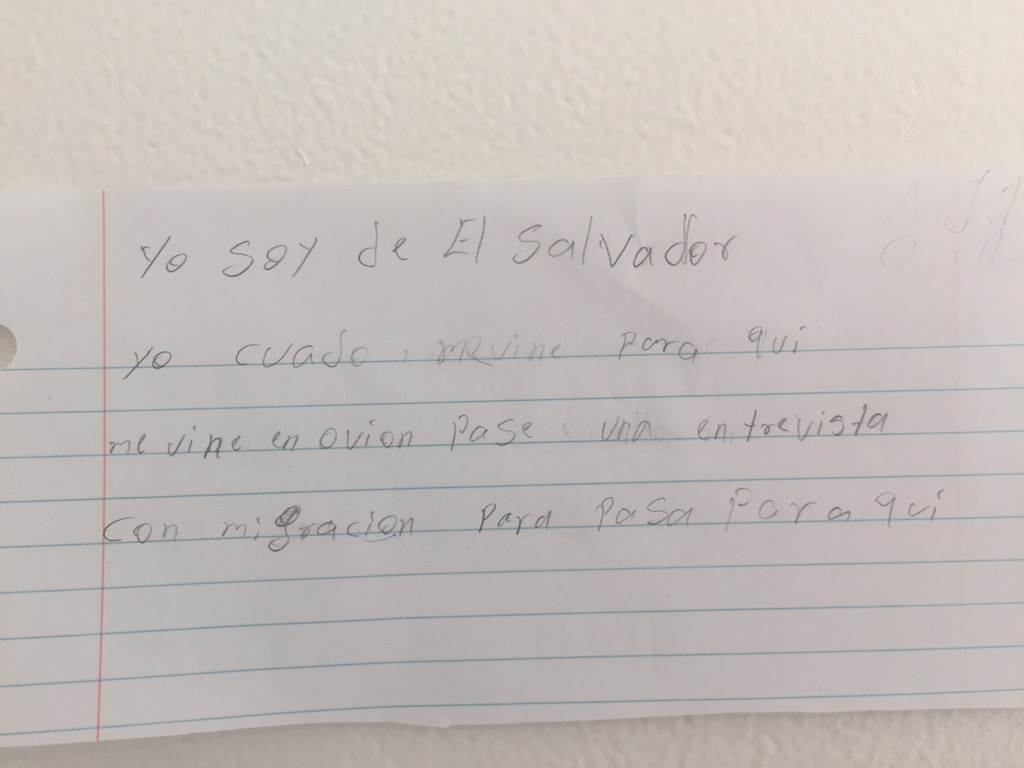 Yo soy de El Salvador
yo cuado mevine para qui
me vine en ovion pase una entrevista
con migracion para pasa para qui